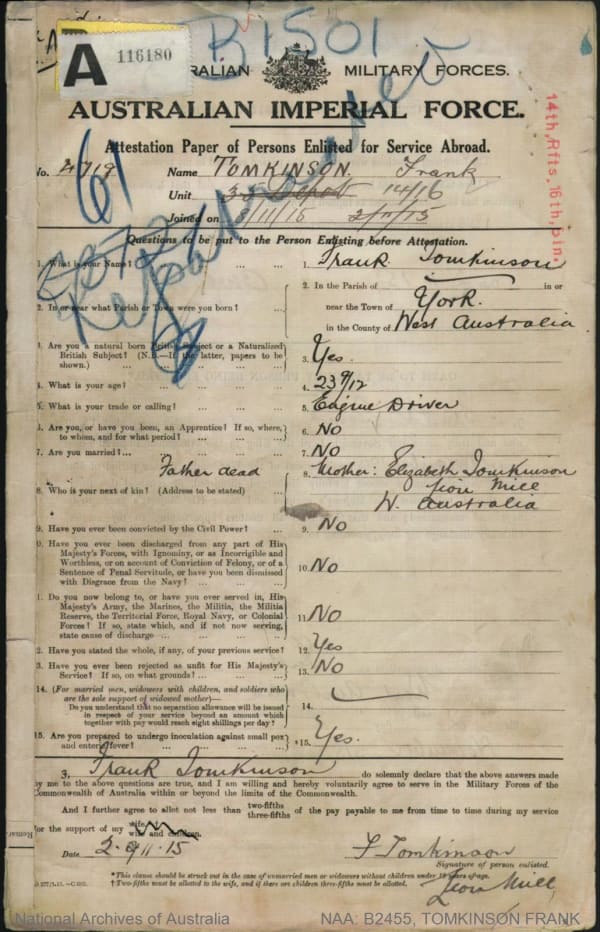 B1501
A 116180
MILITARY FORCES.
AUSTRALIAN IMPERIAL FORCE.
Attestation Paper of Persons Enlisted for Service Abroad.
No. 4719 Name TOMKINSON. Frank
Unit 33 Depot 14/16
Joined on 3/11/15 2/11/15
14th, Rfts, 16th, Bn.
61
Questions to be put to the Person Enlisting before Attestation.
1. What is your Name? ... ... 1. Frank Tomkinson
2. In or near what Parish or Town were you born? ... 2. In the Parish of in or
near the Town of York.
in the County of West Australia
3. Are you a natural born British Subject or a Naturalized
British Subject? (N.B.—If the latter, papers to be
shown.) 3. Yes.
4. What is your age? 4. 23 9/12
5. What is your trade or calling? 5. Engine Driver
6. Are you, or have you been, an Apprentice? If so, where,
to whom, and for what period? 6. No
7. Are you married? 7. No
Father dead 8. Mother: Elizabeth Tomkinson
8. Who is your next of kin? (Address to be stated) Lion Mill
W. Australia
9. Have you ever been convicted by the Civil Power? 9. No
0. Have you ever been discharged from any part of His
Majesty's Forces, with Ignominy, or as Incorrigible and
Worthless, or on account of Conviction of Felony, or of a
Sentence of Penal Servitude, or have you been dismissed
with Disgrace from the Navy? 10. No
1. Do you now belong to, or have you ever served in, His
Majesty's Army, the Marines, the Militia, the Militia
Reserve, the Territorial Force, Royal Navy, or Colonial
Forces? If so, state which, and if not now serving,
state cause of discharge 11. No
2. Have you stated the whole, if any, of your previous service? 12. Yes
3. Have you ever been rejected as unfit for His Majesty's
Service? If so, on what grounds? 13. No
14. (For married men, widowers with children, and soldiers who
are the sole support of widowed mother)—
Do you understand that no separation allowance will be issued
in respect of your service beyond an amount which
together with pay would reach eight shillings per day? 14.
15. Are you prepared to undergo inoculation against small pox
and enteric fever? 15. Yes.
I, Frank Tomkinson do solemnly declare that the above answers made
by me to the above questions are true, and I am willing and hereby voluntarily agree to serve in the Military Forces of the
Commonwealth of Australia within or beyond the limits of the Commonwealth.
And I further agree to allot not less than two-fifths three-fifths of the pay payable to me from time to time during my service
for the support of my wife wife and children.
Date 2.11.15 F Tomkinson
Signature of person enlisted.
Lion Mill
*This clause should be struck out in the case of unmarried men or widowers without children under 18 years of age.
†Two-fifths must be allotted to the wife, and if there are children three-fifths must be allotted.
National Archives of Australia NAA: B2455, TOMKINSON FRANK